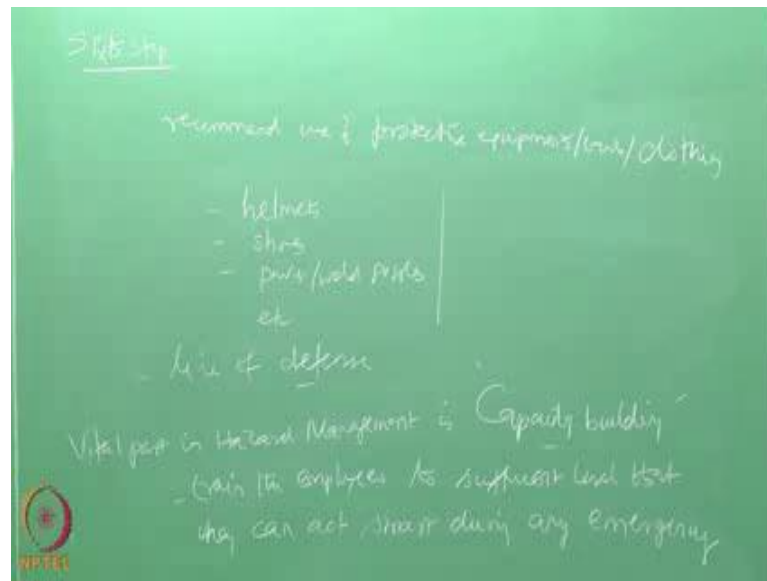 step
recommend use of protective equipments/tools/clothing
- helmets
- shoes
-
etc
- line of defense
Vital part in Hazard Management is "Capacity building"
- train the employees to sufficient level that
they can act smart during any emergency
NPTEL